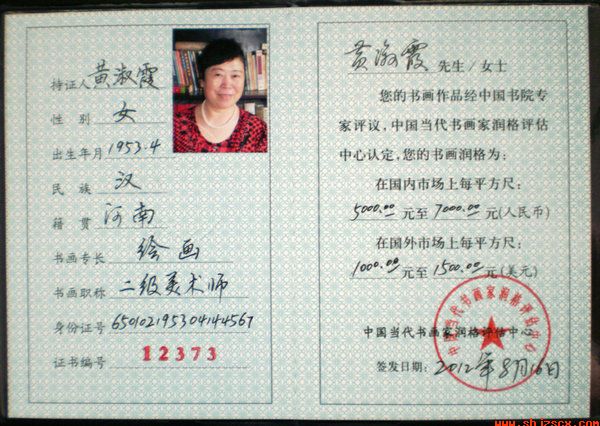 持证人 黄淑霞
性 别 女
出生年月 1953.4
民 族 汉
籍 贯 河南
书画专长 绘画
书画职称 二级美术师
身份证号 650102195304144567
证书编号 12373
黄淑霞 先生/女士
您的书画作品经中国书院专
家评议,中国当代书画家润格评估
中心认定,您的书画润格为:
在国内市场上每平方尺:
5000.00 元至 7000.00 元(人民币)
在国外市场上每平方尺:
1000.00 元至 1500.00 元(美元)
中国当代书画家润格评估中心
中国当代书画家润格评估中心
签发日期: 2012年8月16日
www.shjzscx.com